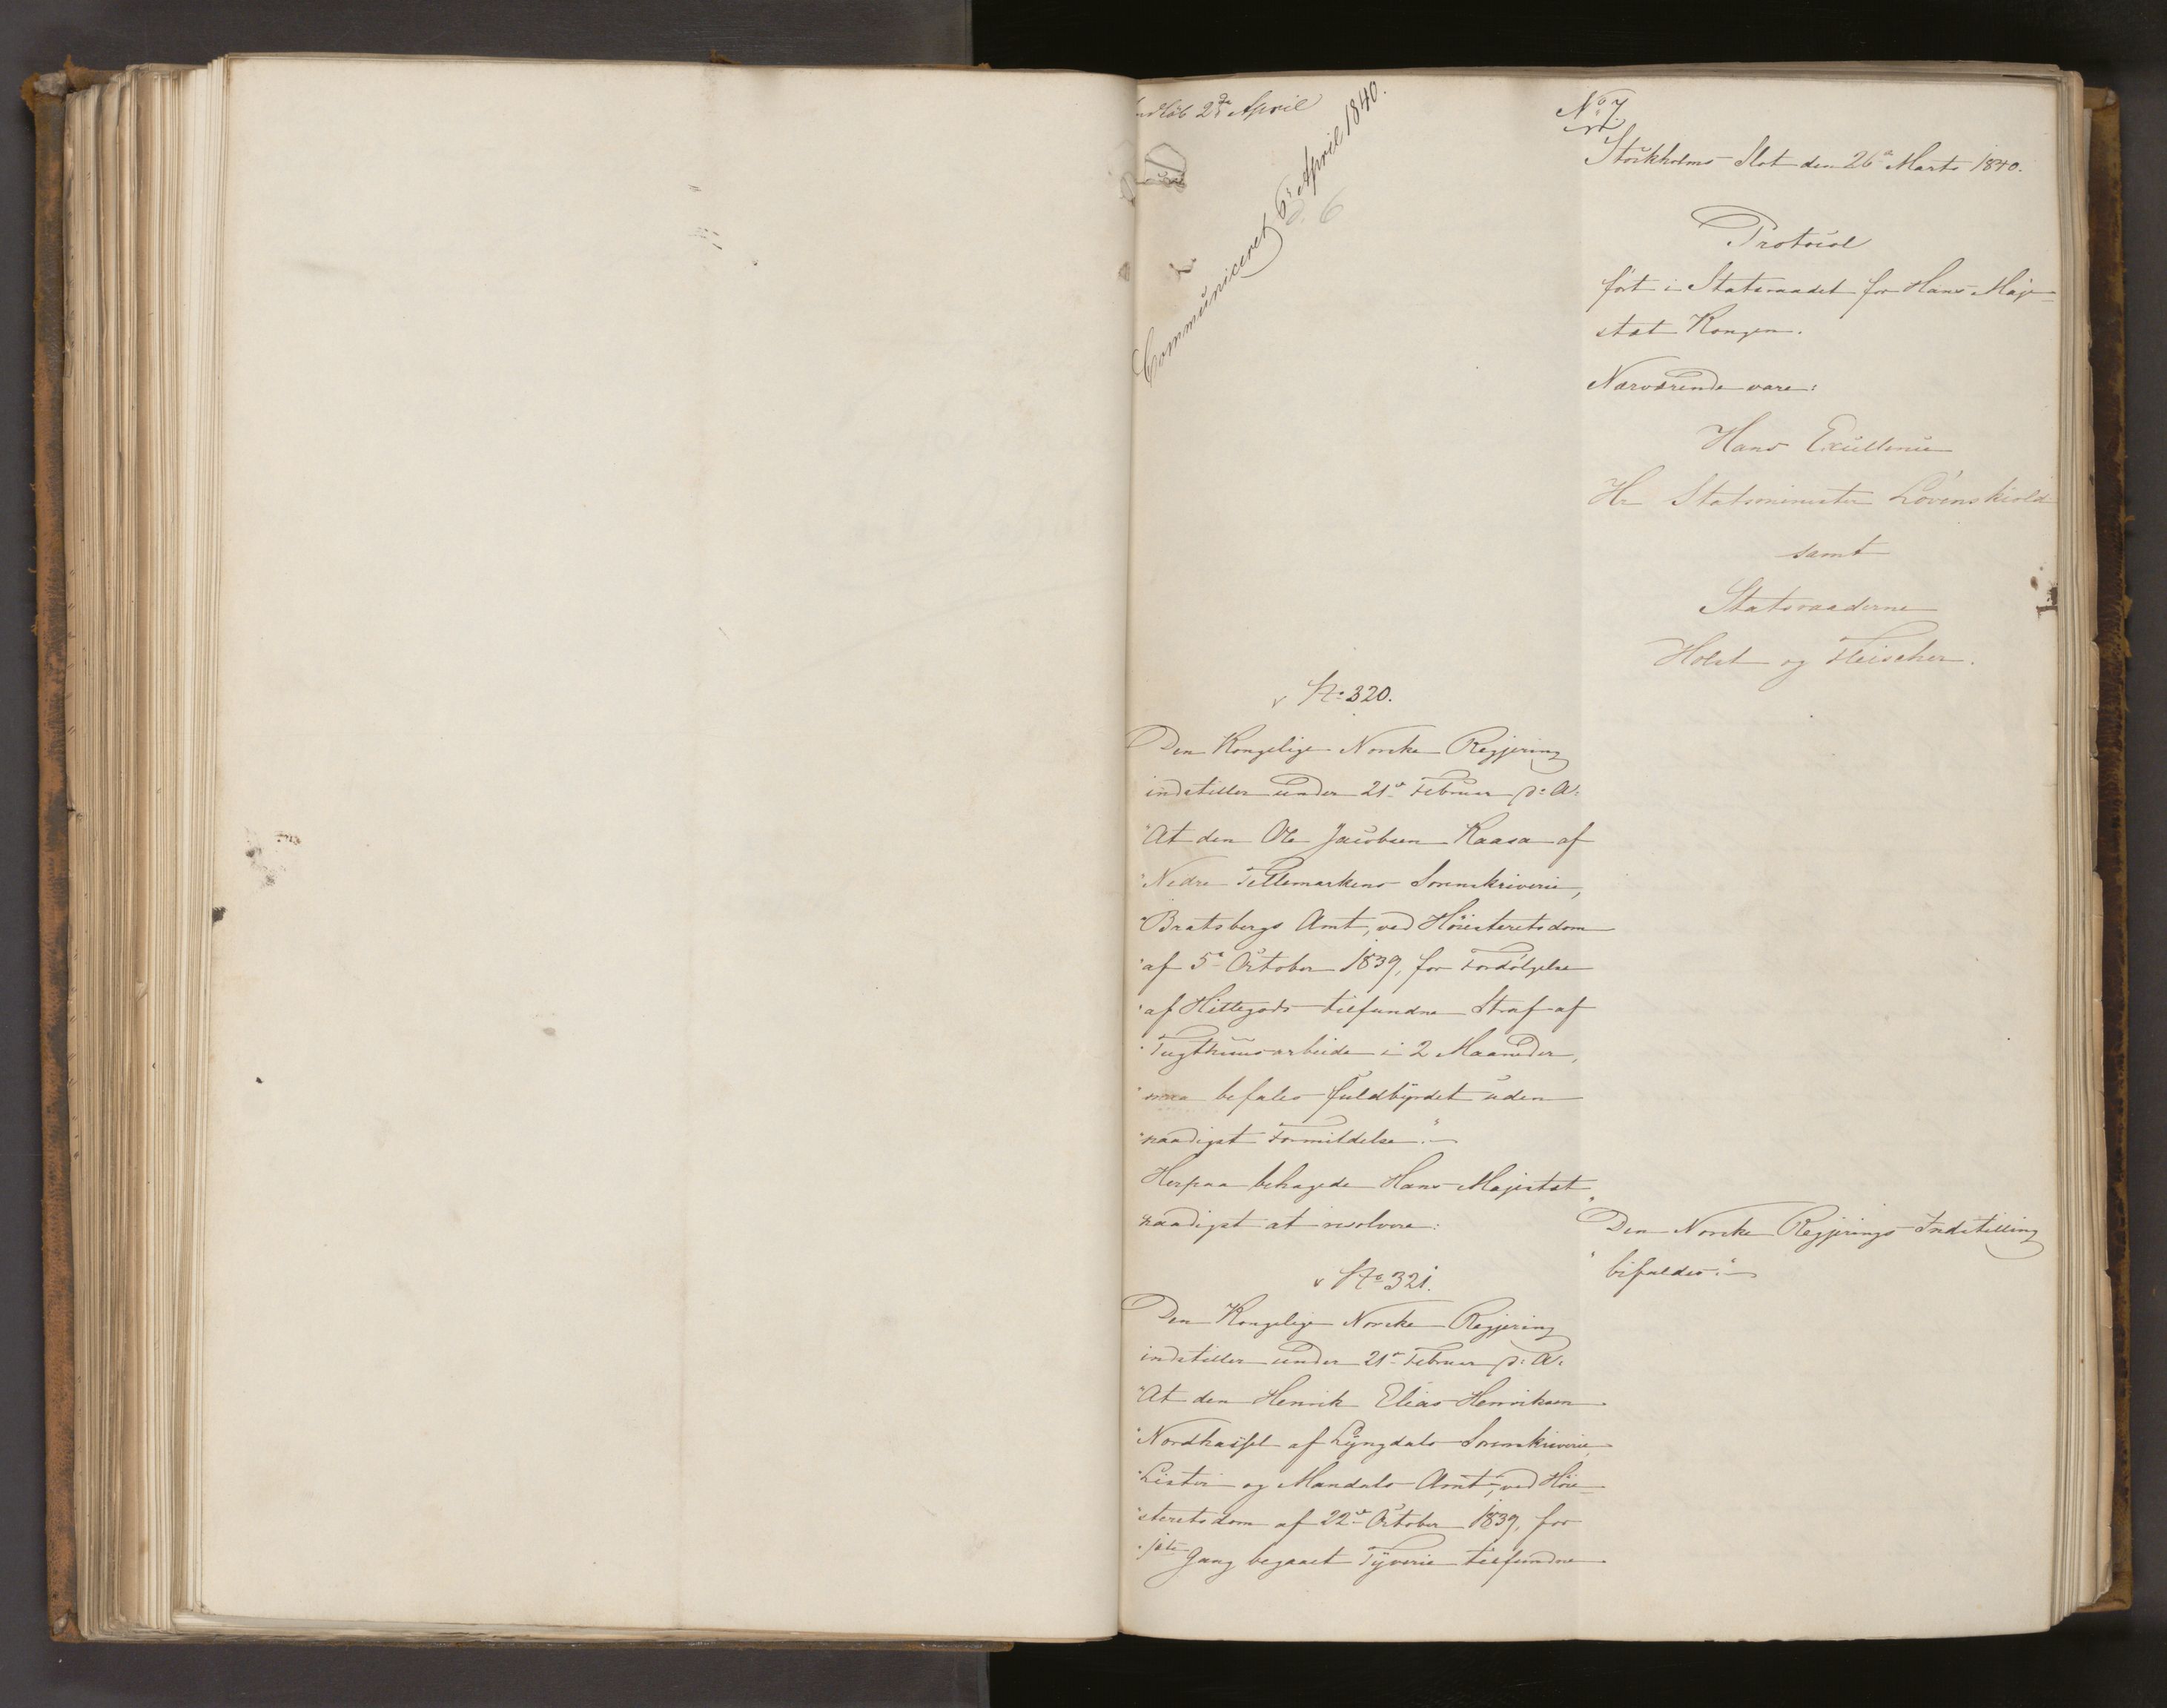 2de April
Communiceret 6te April 1840.
d. 6
No 7.
Stockholms Slot den 26de Marts 1840.
Protocol
ført i Statsraadet for Hans Maje-
stæt Kongen.
Nærværende vare:
Hans Excellence
Hr Statsminister Løvenskiold
samt
Statsraaderne
Holst og Fleischer.
No 320.
Den Kongelige Norske Regjering
indstiller under 21de Februar d: A:
"At den Ole Jacobsen Kaasa af
"Nedre Tellemarkens Sorenskriverie,
"Bratsbergs Amt, ved Høiesteretsdom
"af 5te October 1839, for Fordølgelse
"af Hittegods tilfundne Straf af
"Tugthuusarbeide i 2 Maaneder,
"maa befales fuldbyrdet uden
"naadigst Formildelse."
Herpaa behagede Hans Majestæt
naadigst at resolvere:
"Den Norske Regjerings Indstilling
"bifaldes."
No 321.
Den Kongelige Norske Regjering
indstiller under 21de Februar d: A:
"At den Henrik Elias Henriksen
"Nordhassel af Lyngdals Sorenskriverie,
"Lister og Mandals Amt, ved Høie-
"steretsdom af 22de October 1839, for
"1ste Gang begaaet Tyverie tilfundne